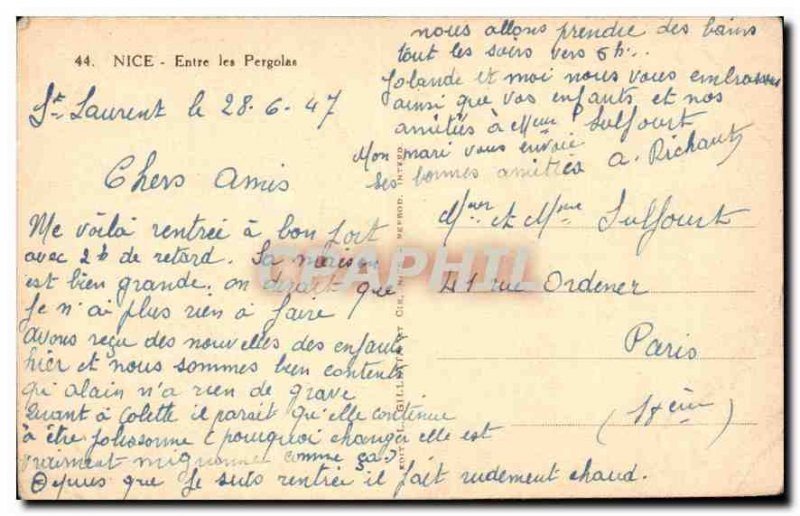 44. NICE - Entre les Pergolas
St Laurent le 28-6-47
Chers amis
Me voilà rentrée à bon Port
avec 2h de retard. Sa maison
est bien grande. on dirait que
Je n'ai plus rien à faire
avons reçu des nouvelles des enfants
hier et nous sommes bien contents
qu'alain n'a rien de grave
Quant à Colette il parait qu'elle continue
à être Polissonne (pourquoi changer elle est
vraiment mignonne comme ça)
Depuis que Je suis rentrée il fait rudement chaud.
nous allons prendre des bains
tout les soirs vers 6h...
Jolande et moi nous vous embrassons
ainsi que vos enfants et nos
amitiés à Mme Sulfourt
Mon mari vous envoie
ses bonnes amitiés a. Richaut
EDIT. L. GILLETTA ET CIE, NICE - REPROD. INTERD.
CPAPHIL
Mmer et Mme Sulfourt
41 rue Ordener
Paris
(18ème)